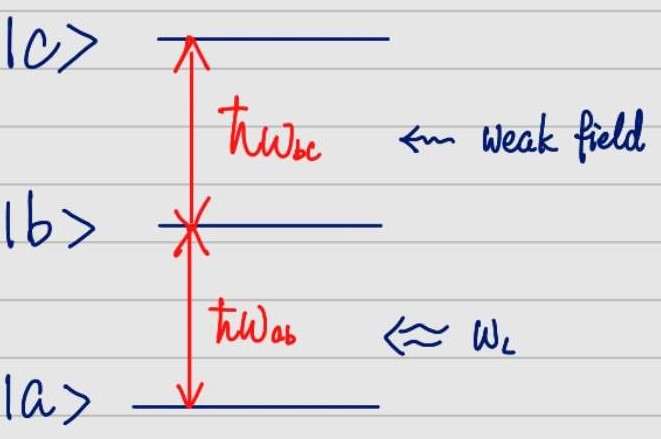 |c>
ħω_bc ← weak field
|b>
ħω_ab ⇐ ω_L
|a>